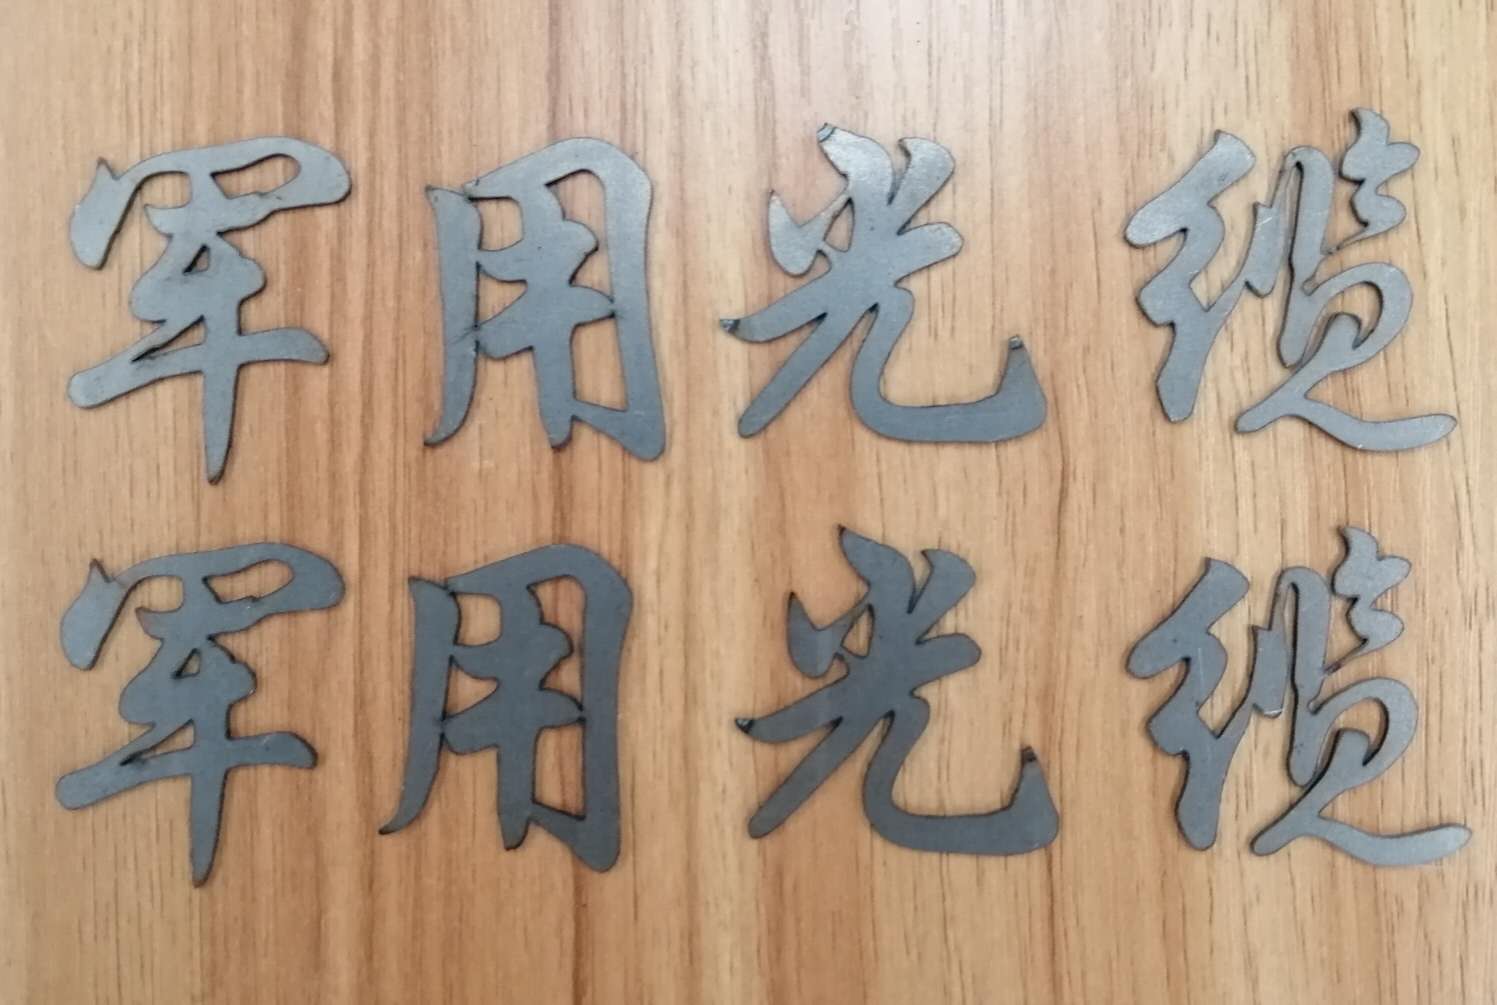 军用光缆
军用光缆